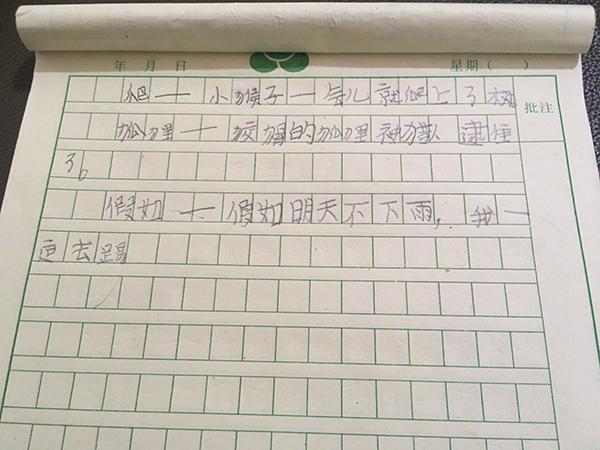 年 月 日 星期（ ）
爬— 小猴子一会儿就爬上了树
批注
狐狸— 狡猾的狐狸被猎 逮住
了。
假如— 假如明天不下雨，我一
定去踢